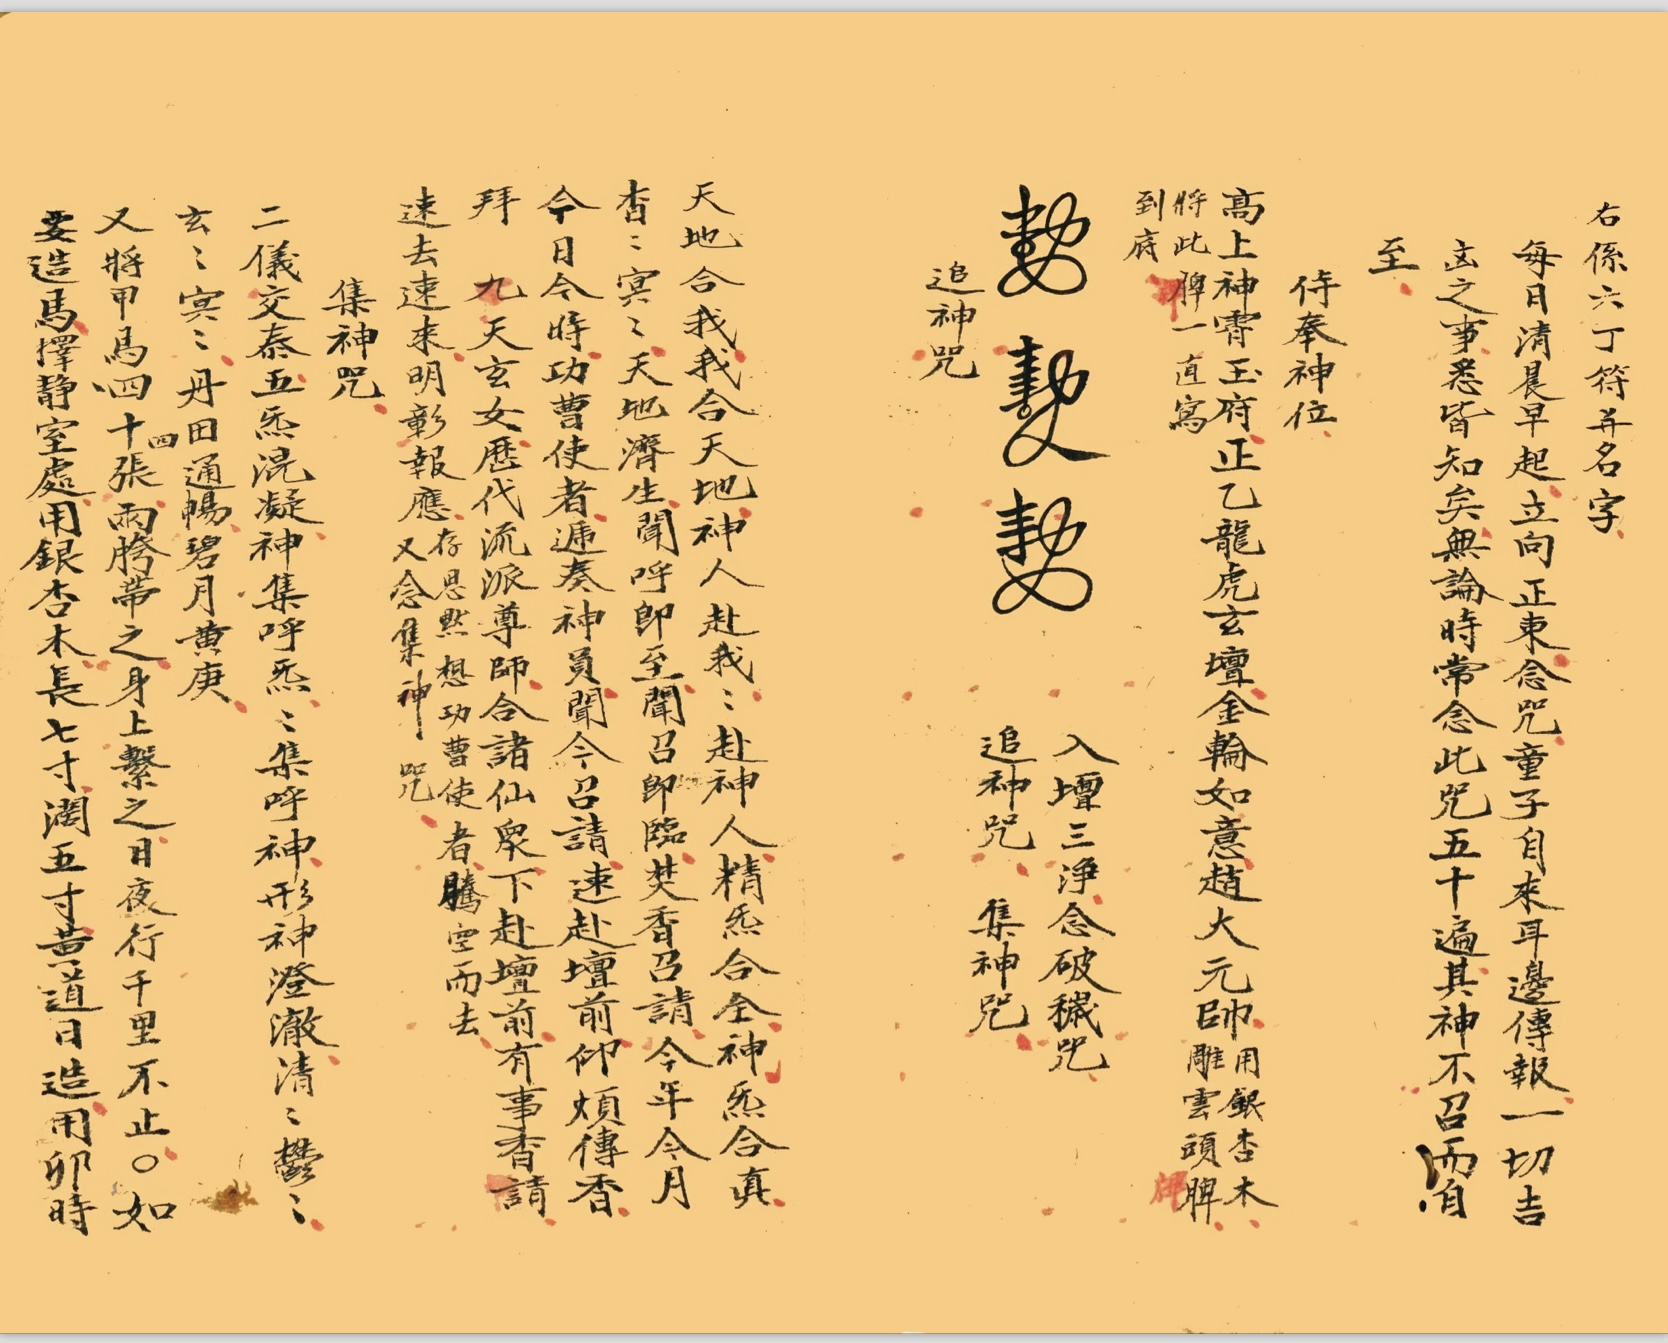 右係六丁符并名字
每日清晨早起立向正東念咒童子自來耳邊傳報一切吉
凶之事悉皆知矣無論時常念此咒五十遍其神不召而自
至
侍奉神位
高上神霄玉府正乙龍虎玄壇金輪如意趙大元帥
用銀杏木
雕雲頭脾
牌
將此脾一直寫
牌
到底
入壇三淨念破穢咒
追神咒　集神咒
追神咒
天地合我我合天地神人赴我〻赴神人精炁合全神炁合真
杳〻冥〻天地濟生聞呼即至聞召即臨焚香召請今年今月
今日今時功曹使者遞奏神員聞今召請速赴壇前仰煩傳香
拜　九天玄女歷代流派尊師合諸仙眾下赴壇前有事香請
速去速來明彰報應
存思默想功曹使者騰空而去
又念集神咒
集神咒
二儀交泰五炁混凝神集呼炁〻集呼神形神澄澈清〻鬱〻
玄〻冥〻丹田通暢碧月黄庚
又將甲馬四十四張兩胯帶之身上繫之日夜行千里不止〇如
要造馬擇靜室處用銀杏木長七寸濶五寸黄道日造用卯時